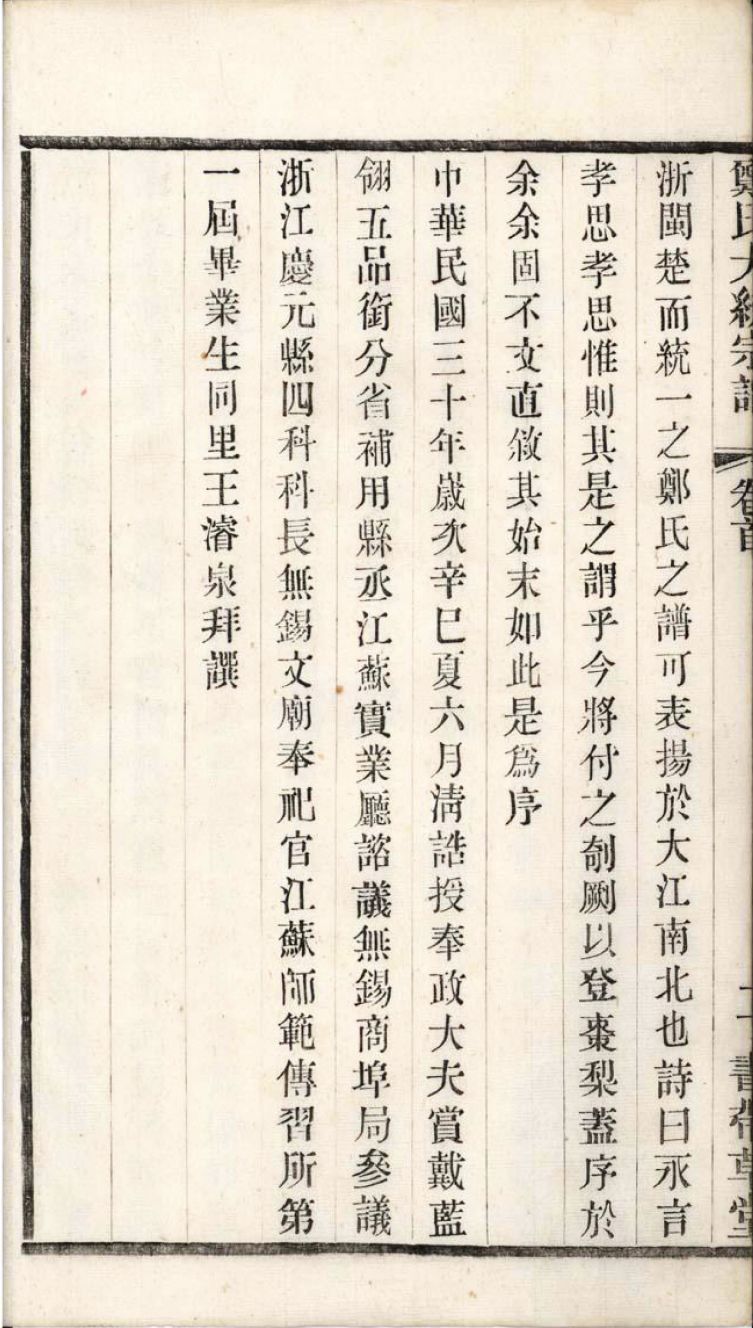 鄭氏大統宗譜 卷首 書帶草堂
浙閩楚而統一之鄭氏之譜可表揚於大江南北也詩曰永言
孝思孝思惟則其是之謂乎今將付之剞劂以登棗梨蓋序於
余余固不文直敘其始末如此是為序
中華民國三十年歲次辛巳夏六月清誥授奉政大夫賞戴藍
翎五品銜分省補用縣丞江蘇實業廳諮議無錫商埠局參議
浙江慶元縣四科科長無錫文廟奉祀官江蘇師範傳習所第
一屆畢業生同里王濬泉拜譔